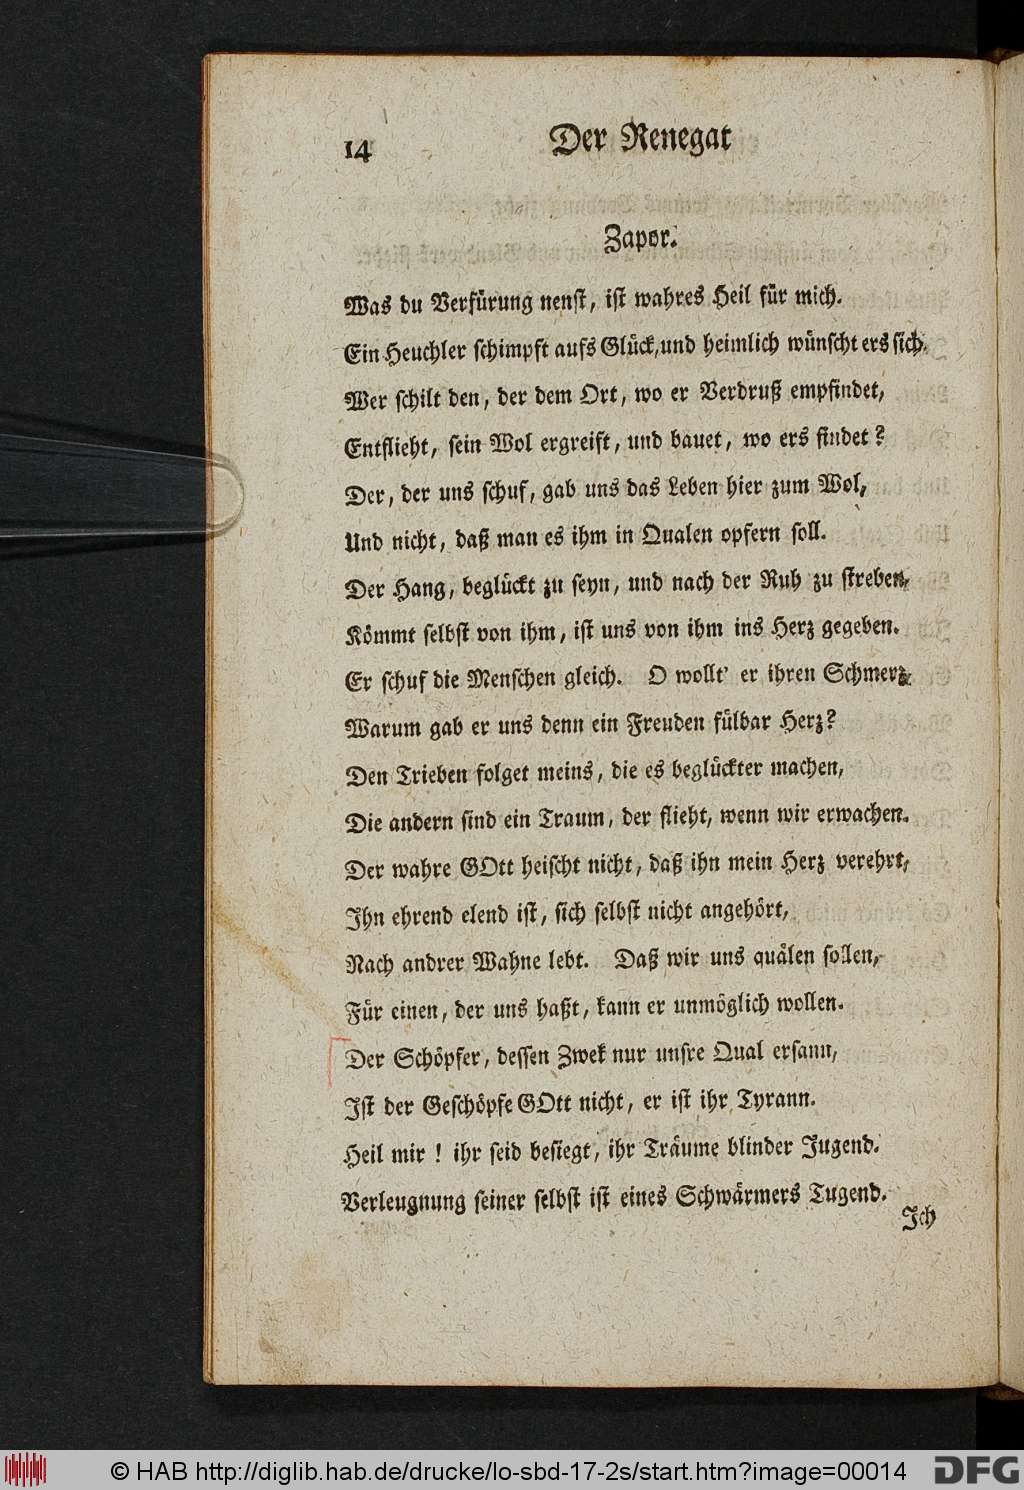 14
Der Renegat
Zapor.
Was du Verfürung nenst, ist wahres Heil für mich.
Ein Heuchler schimpft aufs Glück, und heimlich wünscht ers sich.
Wer schilt den, der dem Ort, wo er Verdruß empfindet,
Entflieht, sein Wol ergreift, und bauet, wo ers findet?
Der, der uns schuf, gab uns das Leben hier zum Wol,
Und nicht, daß man es ihm in Qualen opfern soll.
Der Hang, beglückt zu seyn, und nach der Ruh zu streben,
Kömmt selbst von ihm, ist uns von ihm ins Herz gegeben.
Er schuf die Menschen gleich. O wollt' er ihren Schmerz
Warum gab er uns denn ein Freuden fülbar Herz?
Den Trieben folget meins, die es beglückter machen,
Die andern sind ein Traum, der flieht, wenn wir erwachen.
Der wahre GOtt heischt nicht, daß ihn mein Herz verehrt,
Ihn ehrend elend ist, sich selbst nicht angehört,
Nach andrer Wahne lebt. Daß wir uns quälen sollen,
Für einen, der uns haßt, kann er unmöglich wollen.
Der Schöpfer, dessen Zwek nur unsre Qual ersann,
Ist der Geschöpfe GOtt nicht, er ist ihr Tyrann.
Heil mir! ihr seid besiegt, ihr Träume blinder Jugend.
Verleugnung seiner selbst ist eines Schwärmers Tugend.
Ich
© HAB http://diglib.hab.de/drucke/lo-sbd-17-2s/start.htm?image=00014
DFG